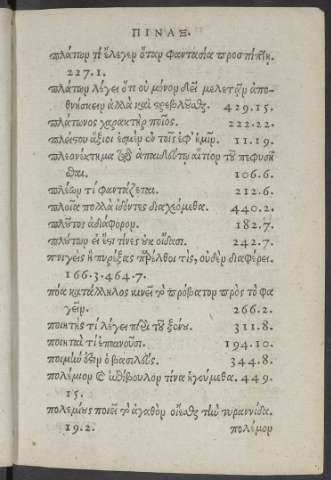 ΠΙΝΑΞ.
πλάτων τί ἔλεγεν ὅταν φαντασία προσπέσῃ.
227.1.
πλάτων λέγει ὅτι οὐ μόνον δεῖ μελετᾶν ἀπο-
θνήσκειν ἀλλὰ καὶ στρεβλοῦσθαι. 429.15.
πλάτωνος χαρακτὴρ ποῖος. 222.22.
πλείστου ἄξιοι ἐσμὲν ἐν τοῖς ἐφ' ἡμῖν. 11.19.
πλεονέκτημα τοῦ ἀπαιδεύτου αἴτιον τοῦ πεφυσῆ
σθαι. 106.6.
πλέων τί φαντάζεται. 212.6.
πλοῖα πολλὰ ἰδόντες διαχεόμεθα. 440.2.
πλοῦτος ἀδιάφορον. 182.7.
πλύνων εἰ τινες οὐκ οἴδασι. 242.7.
πνιγεὶς ἢ πυρέξας ἀπέλθοι τὶς, οὐδὲν διαφέρει.
166.3.464.7.
πόα κατάλληλος κινεῖ τὸ πρόβατον πρὸς τὸ φα
γεῖν. 266.2.
ποιητὴς τί λέγει περὶ τοῦ ξένου. 311.8.
ποιηταὶ τί ἐπαινοῦσι. 194.10.
ποιμὴν ὁ βασιλεύς. 344.8.
πολέμιον καὶ ἐπίβουλον τίνα ἡγούμεθα. 449.
15.
πολεμίους ποιεῖ τὸ ἀγαθὸν οἴεσθαι τὴν τυραννίδα.
19.2. πολέμου